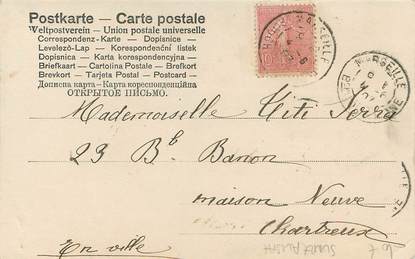 Postkarte – Carte postale
Weltpostverein – Union postale universelle
Correspondenz-Karte – Dopisnice
Levelező-Lap – Korespondenční lístek
Dopisnica – Karta korespondencyjna
Briefkaart – Cartolina Postale – Brefkort
Brevkort – Tarjeta Postal – Postcard
Дописна карта – Кореспонденційна
ОТКРЫТОЕ ПИСЬМО.
MARSEILLE
MARSEILLE
Mademoiselle Titi Serra
23 Bd Banon
maison Neuve
Chartreux
En ville